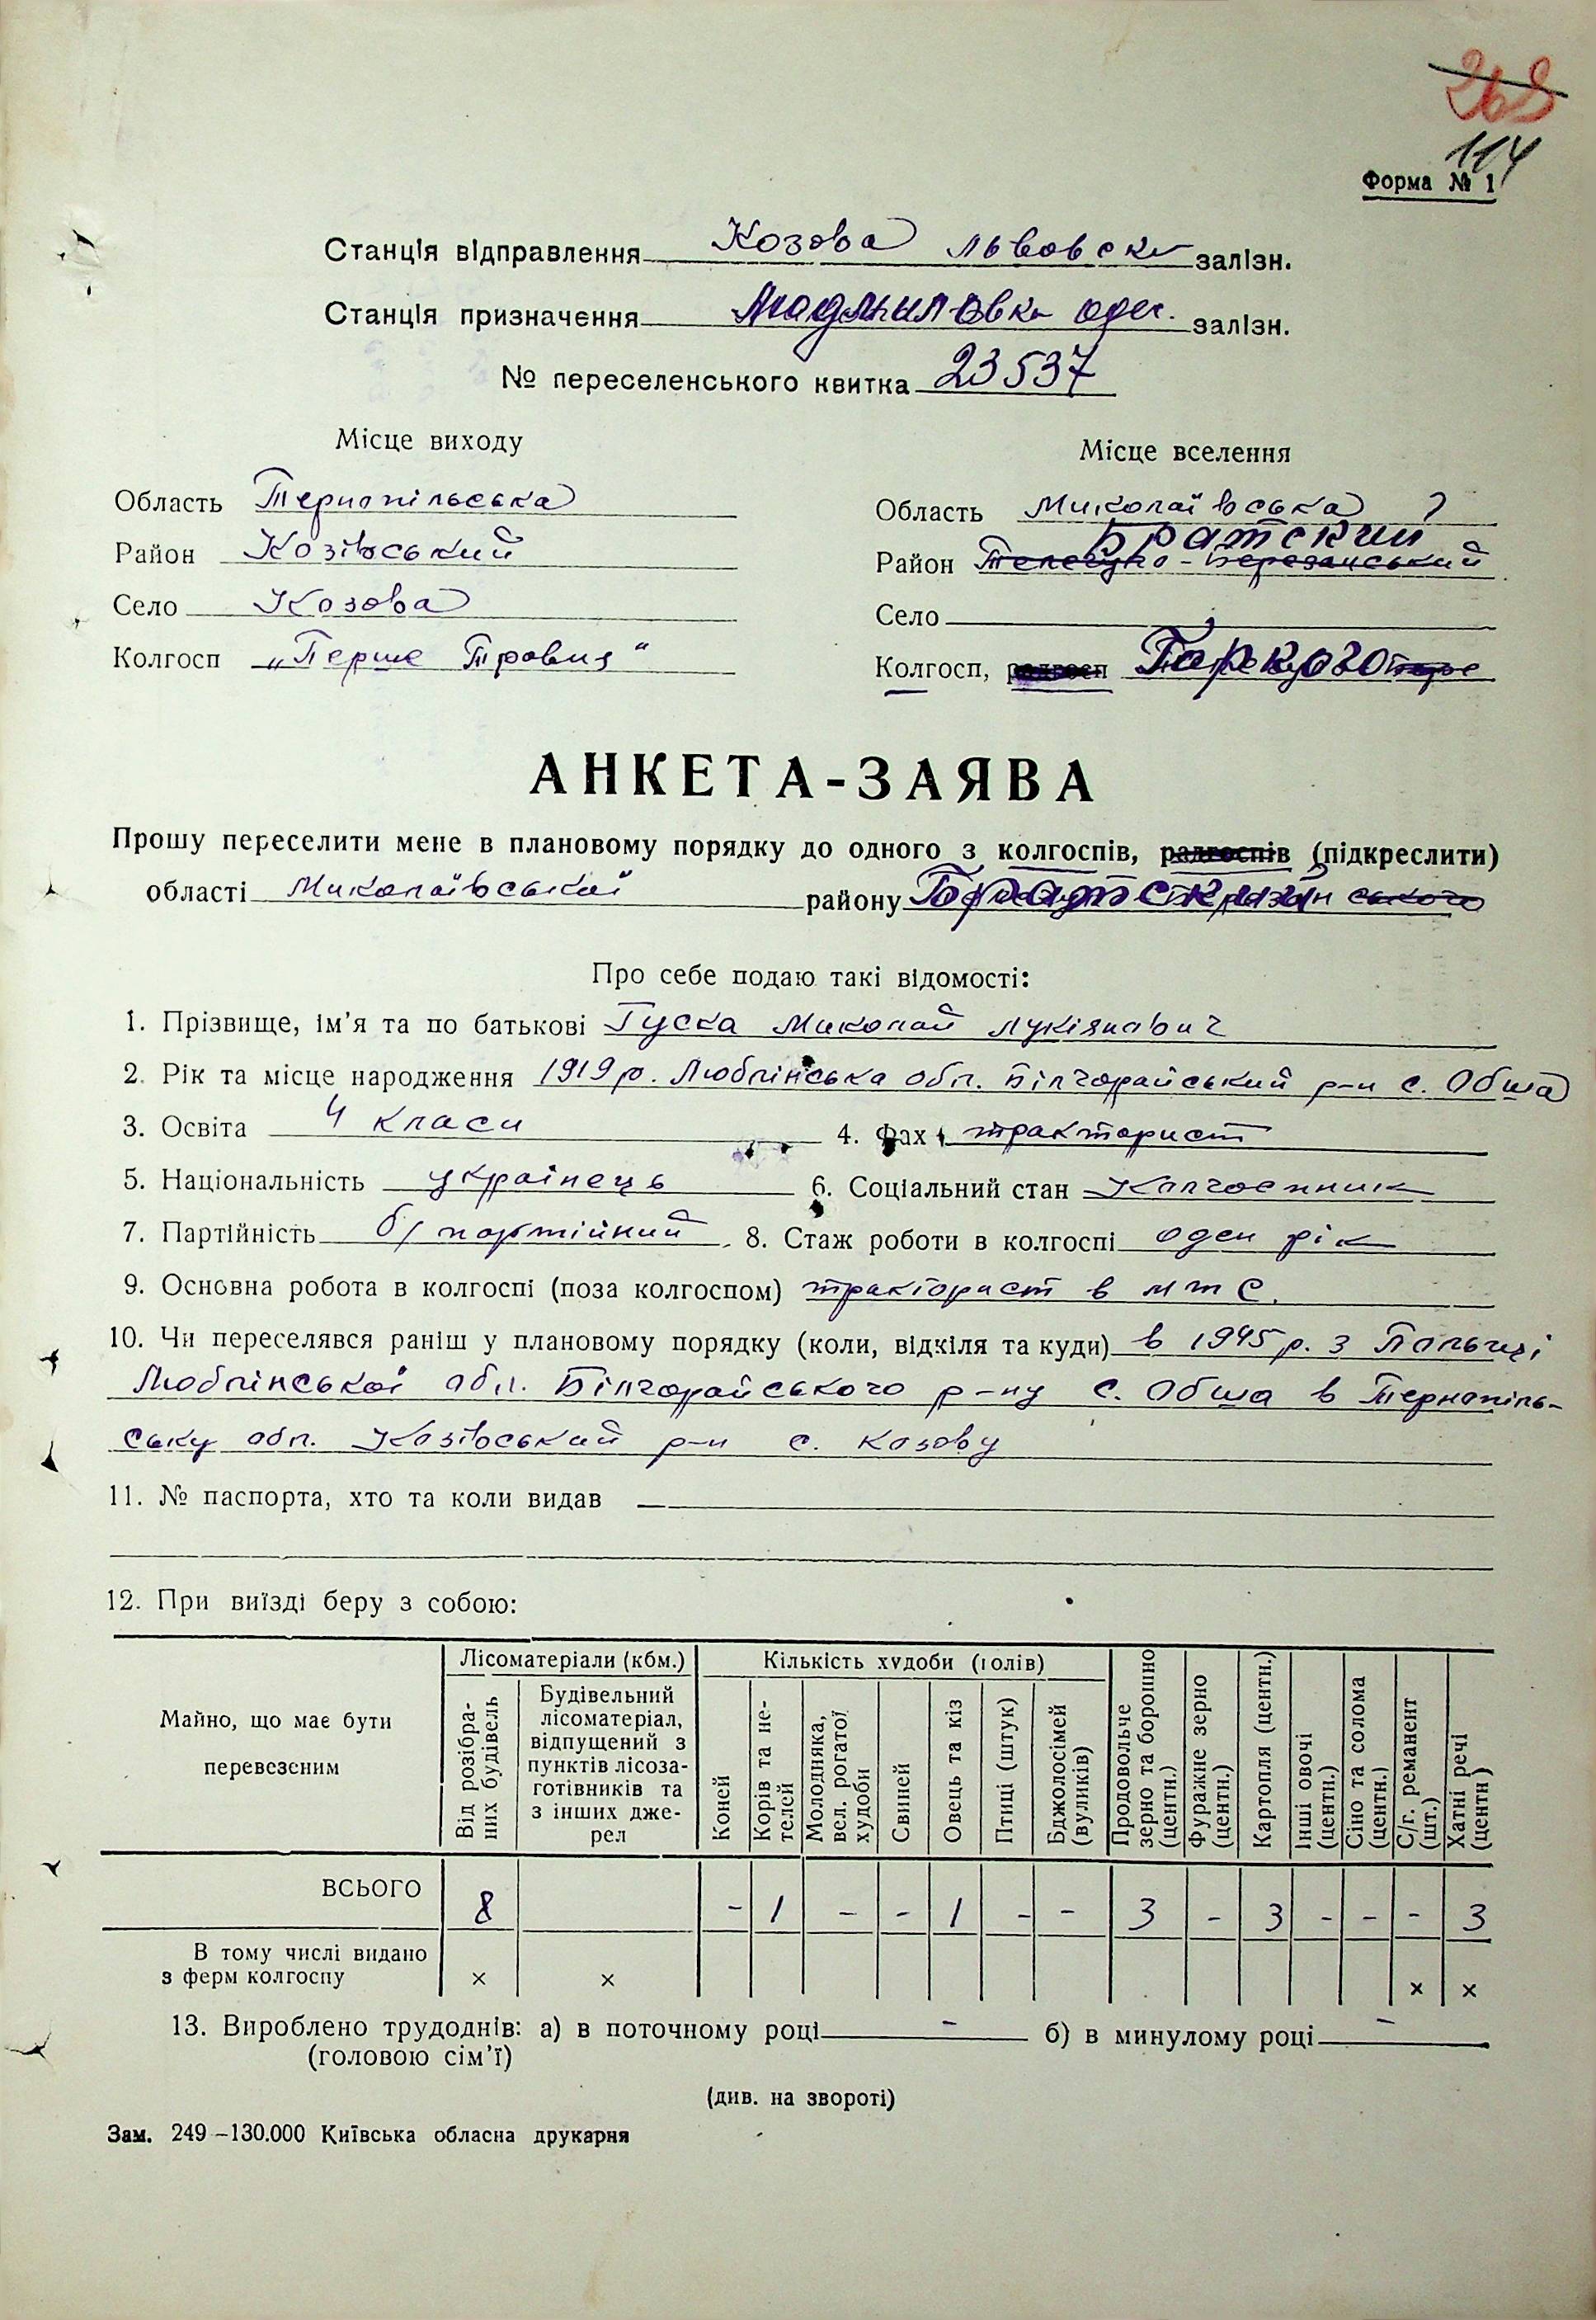 269
114
Форма № 1
Станція відправлення Козова Львовск залізн.
Станція призначення одес. залізн.
№ переселенського квитка 23537
Місце виходу
Місце вселення
Область Тернопільська
Область Миколаївська
Братский
Район Козівський
Район Телегуло-Березанський
Село Козова
Село
Колгосп „Перше Травня"
Колгосп, радгосп
АНКЕТА-ЗАЯВА
Прошу переселити мене в плановому порядку до одного з колгоспів, радгоспів (підкреслити)
області Миколаївської району Братский ського
Про себе подаю такі відомості:
1. Прізвище, ім'я та по батькові Гуска Миколай Лукіянович
2. Рік та місце народження 1919 р. Люблінська обл. Білгорайський р-н с. Обша
3. Освіта 4 класи 4. Фах тракторист
5. Національність українець 6. Соціальний стан Колгоспник
7. Партійність б/партійний 8. Стаж роботи в колгоспі оден рік
9. Основна робота в колгоспі (поза колгоспом) тракторист в мтс.
10. Чи переселявся раніш у плановому порядку (коли, відкіля та куди) в 1945 р. з Польщі
Люблінської обл. Білгорайського р-ну с. Обша в Тернопіль-
ську обл. Козівський р-н с. Козову
11. № паспорта, хто та коли видав —
12. При виїзді беру з собою:
Майно, що має бути перевезеним
Лісоматеріали (кбм.)
Кількість худоби (голів)
Від розібраних будівель
Будівельний лісоматеріал, відпущений з пунктів лісозаготівників та з інших джерел
Коней
Корів та нетелей
Молодняка, вел. рогатої худоби
Свиней
Овець та кіз
Птиці (штук)
Бджолосімей (вуликів)
Продовольче зерно та борошно (центн.)
Фуражне зерно (центн.)
Картопля (центн.)
Інші овочі (центн.)
Сіно та солома (центн.)
С/г. реманент (шт.)
Хатні речі (центн)
ВСЬОГО 8 - 1 - - 1 - - 3 - 3 - - - 3
В тому числі видано
з ферм колгоспу × × × ×
13. Вироблено трудоднів: а) в поточному році - б) в минулому році -
(головою сім'ї)
(див. на звороті)
Зам. 249–130.000 Київська обласна друкарня